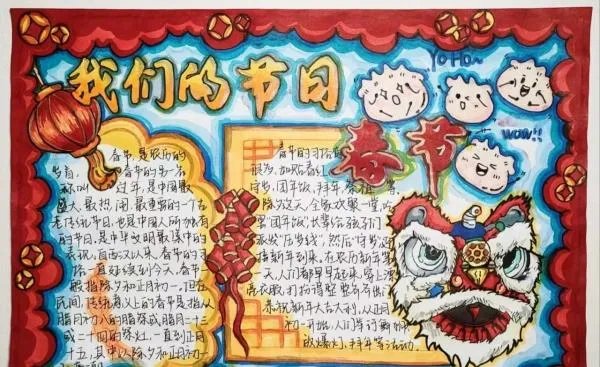 我们的节日
YoHo~
春节
wow!!
春节,是农历的
岁首,春节的另一名
称叫过年,是中国最
盛大、最热闹、最重要的一个古
老传统节日,也是中国人所独有
的节日,是中华文明最集中的
表现。自西汉以来,春节的习
俗一直延续到今天。春节一
般指除夕和正月初一。但在
民间,传统意义上的春节是指从
腊月初八的腊祭或腊月二十三
或二十四的祭灶,一直到正月
十五,其中以除夕和正月初一
春节的习俗
很多,如贴春红
守岁、团年饭、拜年
除夕这天,全家欢聚一堂,吃
罢"团年饭",长辈给孩子们
派发"压岁钱",然后"守岁"迎
接新年到来,在农历新年第
一天人们都早早起来,穿上漂
亮衣服,打扮调整整齐齐出门
恭祝新年大吉大利,从正月
初一开始,人们举行
放爆灯、拜年等活动。